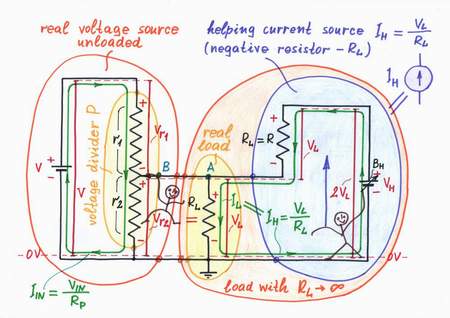 real voltage source
unloaded
helping current source
(negative resistor – RL)
IH = VL/RL
IH
voltage divider P
r1
r2
V
V
Vr1
Vr2
B
A
real
load
RL
RL = R
VL
VL
IL
IH = VL/RL
2VL
BH
VH
0V
0V
IIN = VIN/RP
load with RL → ∞